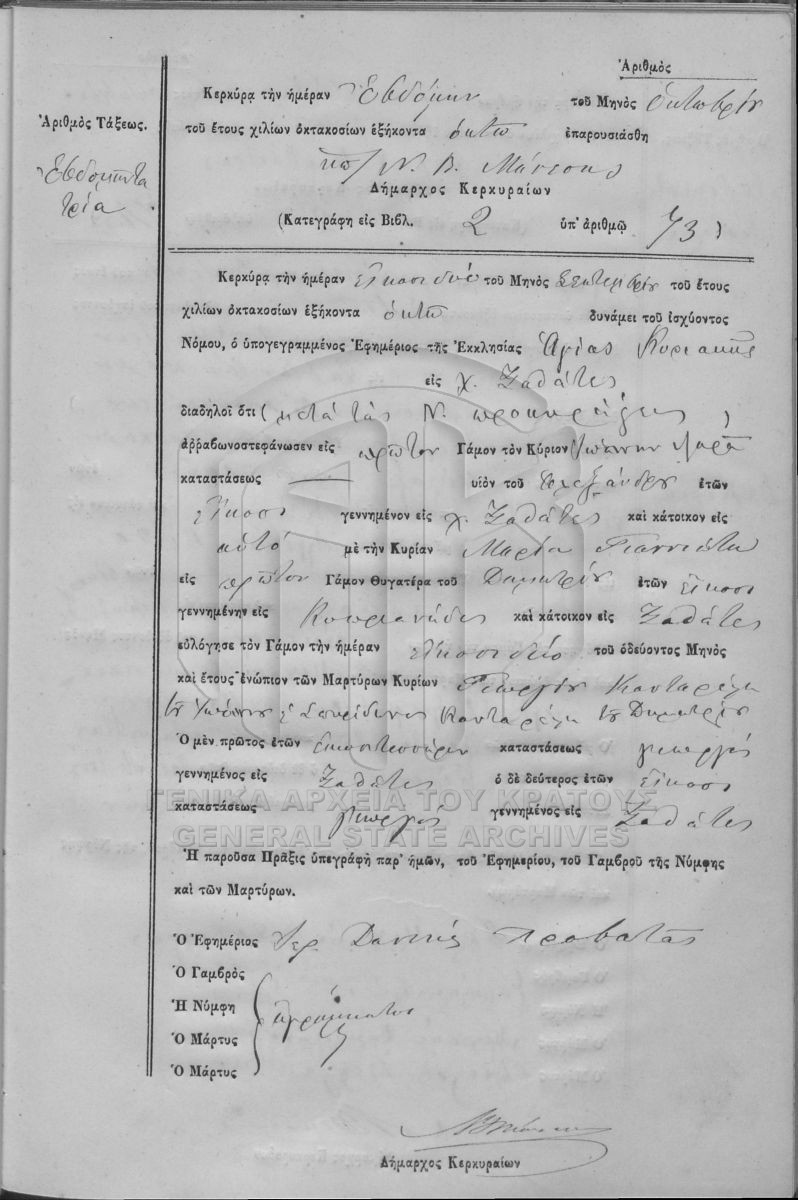 Ἀριθμὸς
Κερκύρᾳ τὴν ἡμέραν Ἑβδόμην τοῦ Μηνὸς Ὀκτωβρίου
Ἀριθμὸς Τάξεως.
τοῦ ἔτους χιλίων ὀκτακοσίων ἑξήκοντα ὀκτὼ ἐπαρουσιάσθη
Ἑβδομῆντα
τρία
Ν. Β. Μάνεσης
Δήμαρχος Κερκυραίων
(Κατεγράφη εἰς Βιβλ. 2 ὑπ' ἀριθμῷ 73)
Κερκύρᾳ τὴν ἡμέραν εἰκοσιδύο τοῦ Μηνὸς Σεπτεμβρίου τοῦ ἔτους
χιλίων ὀκτακοσίων ἑξήκοντα ὀκτὼ δυνάμει τοῦ ἰσχύοντος
Νόμου, ὁ ὑπογεγραμμένος Ἐφημέριος τῆς Ἐκκλησίας Ἁγίας Κυριακῆς
εἰς χ. Ξαθάτες
διαδηλοῖ ὅτι (μετὰ τὰς Ν. προκηρύξεις)
ἀῤῥαβωνοστεφάνωσεν εἰς πρῶτον Γάμον τὸν Κύριον Ἰωάννην
καταστάσεως — υἱὸν τοῦ Ἀλεξάνδρου ἐτῶν
εἴκοσι γεννημένον εἰς χ. Ξαθάτες καὶ κάτοικον εἰς
αὐτό μὲ τὴν Κυρίαν Μαρία Γιαννιώτη
εἰς πρῶτον Γάμον Θυγατέρα τοῦ Δημητρίου ἐτῶν εἴκοσι
γεννημένην εἰς Κουρπανάδες καὶ κάτοικον εἰς Ξαθάτες
εὐλόγησε τὸν Γάμον τὴν ἡμέραν εἰκοσιδύο τοῦ ὁδεύοντος Μηνὸς
καὶ ἔτους ἐνώπιον τῶν Μαρτύρων Κυρίων Γεωργίου Κανταρέλη
τοῦ Ἰωάννου ὁ Σπυρίδωνος Κανταρέλη τοῦ Δημητρίου
Ὁ μὲν πρῶτος ἐτῶν εἰκοσιτεσσάρων καταστάσεως γεωργός
γεννημένος εἰς Ξαθάτες ὁ δὲ δεύτερος ἐτῶν εἴκοσι
καταστάσεως γεωργός γεννημένος εἰς Ξαθάτες
ΓΕΝΙΚΑ ΑΡΧΕΙΑ ΤΟΥ ΚΡΑΤΟΥΣ
GENERAL STATE ARCHIVES
Ἡ παροῦσα Πρᾶξις ὑπεγράφη παρ' ἡμῶν, τοῦ Ἐφημερίου, τοῦ Γαμβροῦ τῆς Νύμφης
καὶ τῶν Μαρτύρων.
Ὁ Ἐφημέριος Ἱερ. Δανιὴλ Προβατᾶς
Ὁ Γαμβρὸς
Ἡ Νύμφη ἀγράμματοι
Ὁ Μάρτυς
Ὁ Μάρτυς
Δήμαρχος Κερκυραίων